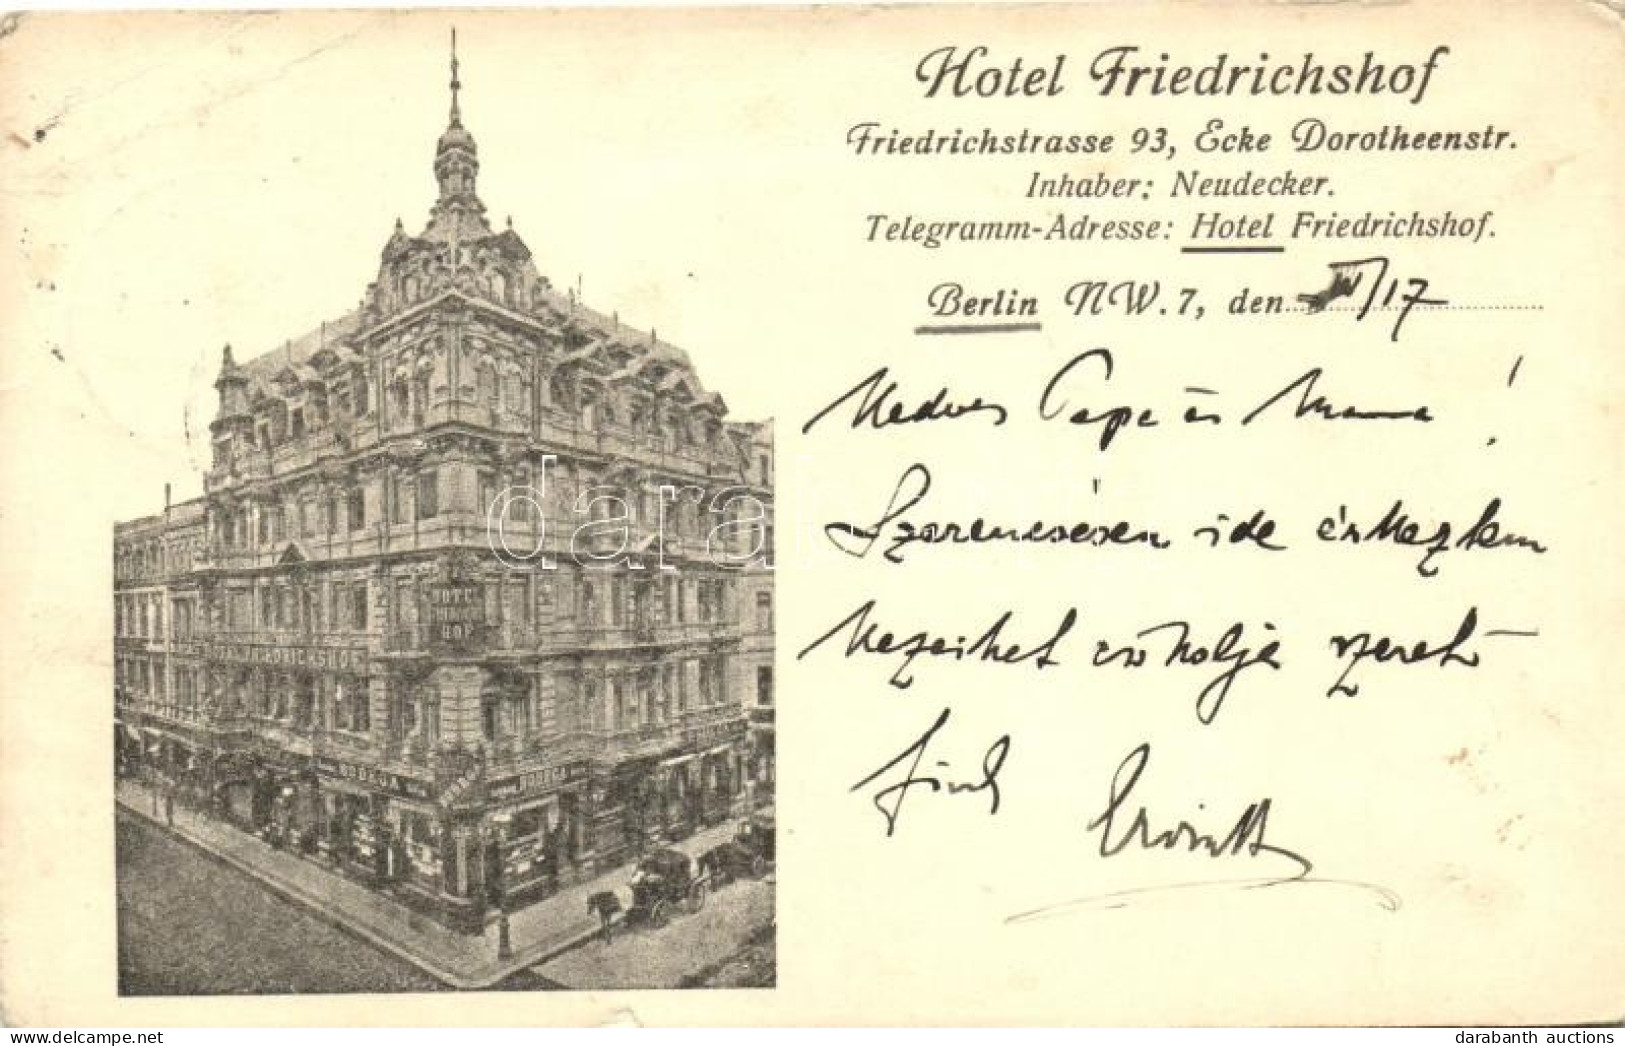 Hotel Friedrichshof
Friedrichstrasse 93, Ecke Dorotheenstr.
Inhaber: Neudecker.
Telegramm-Adresse: Hotel Friedrichshof.
Berlin NW. 7, den /17
Kedves Papa és Mama!
Szerencsésen ide érkeztem
Kezeiket csókolja szerető
fiuk
HOTEL
HOF
FRIEDRICHSHOF
BODEGA
BODEGA
darabanth
darabanth auctions